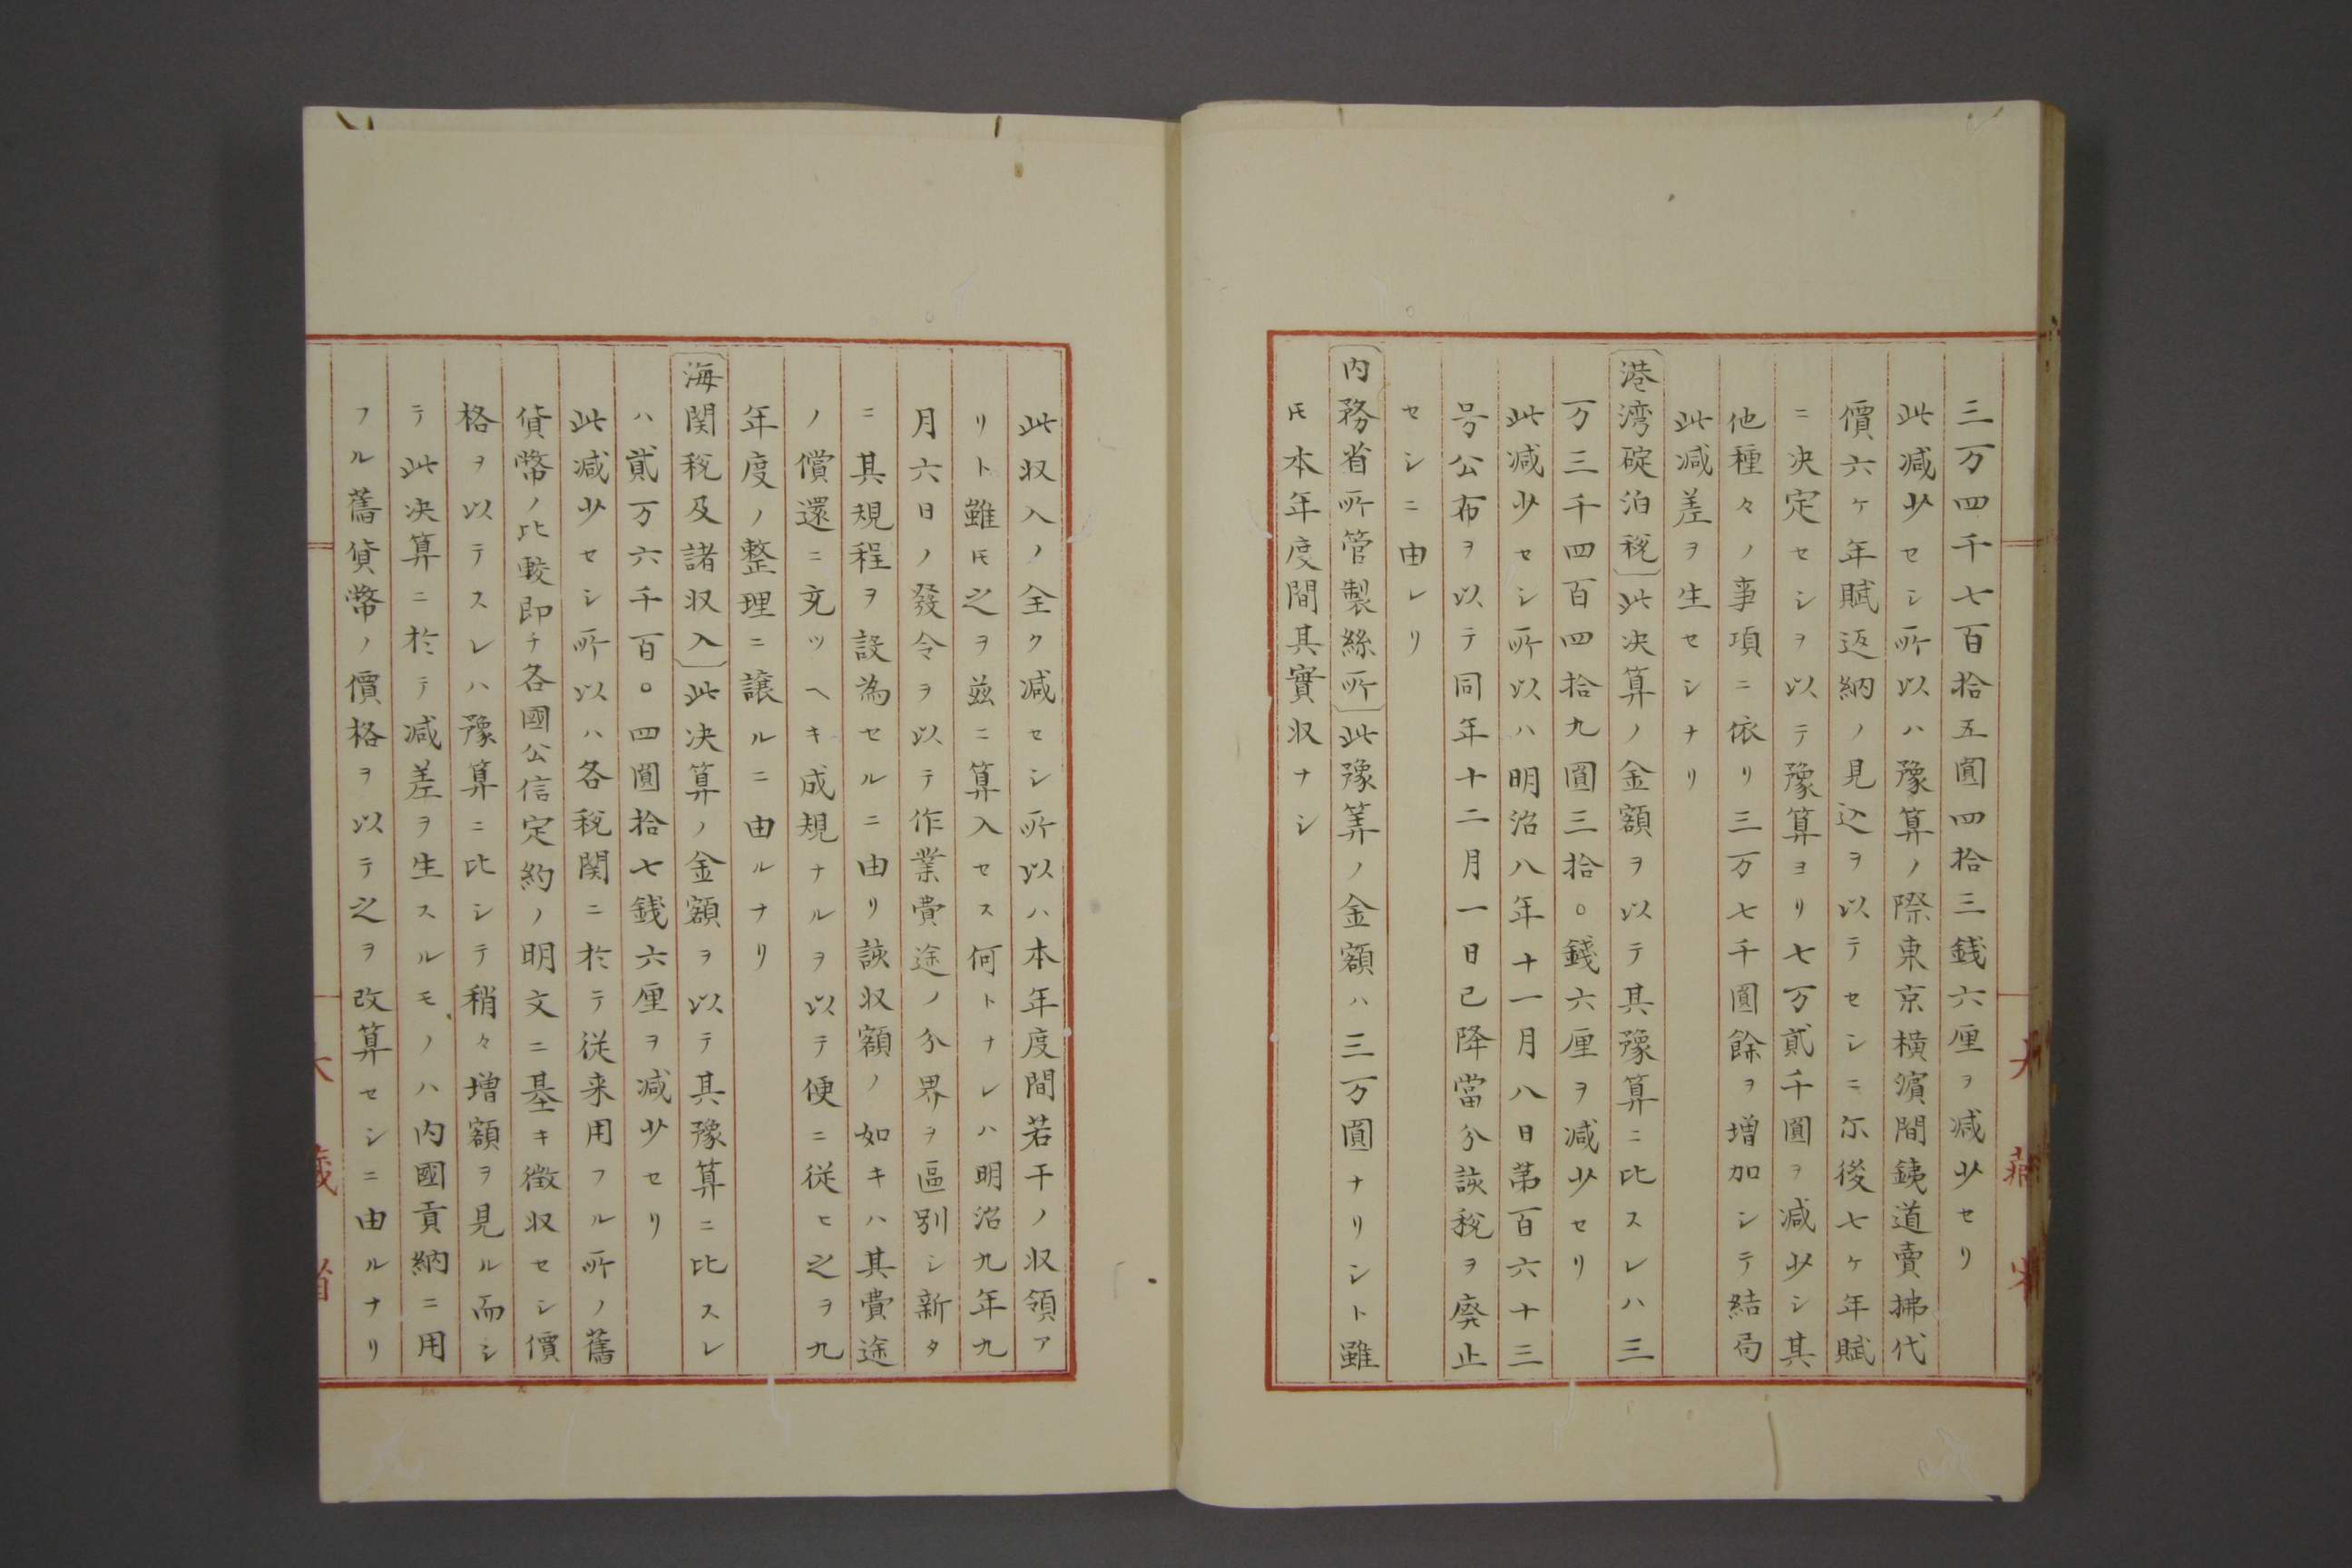 三万四千七百拾五圓四拾三銭六厘ヲ減少セリ
此減少セシ所以ハ豫算ノ際東京横濵間銕道賣拂代
價六ケ年賦返納ノ見込ヲ以テセシニ尓後七ケ年賦
ニ决定セシヲ以テ豫算ヨリ七万貳千圓ヲ減少シ其
他種々ノ事項ニ依リ三万七千圓餘ヲ増加シテ結局
此減差ヲ生セシナリ
港湾碇泊税〕此决算ノ金額ヲ以テ其豫算ニ比スレハ三
万三千四百四拾九圓三拾〇錢六厘ヲ減少セリ
此減少セシ所以ハ明治八年十一月八日苐百六十三
号公布ヲ以テ同年十二月一日已降當分該税ヲ廃止
セシニ由レリ
内務省所管製絲所〕此豫筭ノ金額ハ三万圓ナリシト雖
𪜈本年度間其實収ナシ
此収入ノ全ク減セシ所以ハ本年度間若干ノ収領ア
リト雖𪜈之ヲ茲ニ算入セス何トナレハ明治九年九
月六日ノ發令ヲ以テ作業費途ノ分界ヲ區別シ新タ
ニ其規程ヲ設為セルニ由リ該収額ノ如キハ其費途
ノ償還ニ充ツヘキ成規ナルヲ以テ便ニ従ヒ之ヲ九
年度ノ整理ニ譲ルニ由ルナリ
海関税及諸収入〕此决算ノ金額ヲ以テ其豫算ニ比スレ
ハ貳万六千百〇四圓拾七銭六厘ヲ減少セリ
此減少セシ所以ハ各税関ニ於テ従来用フル所ノ舊
貨幣ノ比較即チ各國公信定約ノ明文ニ基キ徴収セシ價
格ヲ以テスレハ豫算ニ比シテ稍々増額ヲ見ル而シ
テ此决算ニ於テ減差ヲ生スルモノハ内國貢納ニ用
フル舊貨幣ノ價格ヲ以テ之ヲ改算セシニ由ルナリ